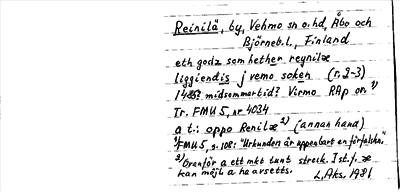 Reinilä, by, Vehmo sn o. hd, Åbo och
Björneb. l., Finland
eth godz som hether reynilæ
liggiendis j vemo soken (r. 2-3)
1435? midsommartid? Virmo RAp or. 1)
Tr. FMU 5, nr 4034
a t.: oppo Renilæ 2) (annan hand)
1) FMU 5, s. 108: "Urkunden är uppenbart en förfalskn."
2) Ovanför a ett mkt tunt streck. I st. f. æ
kan möjl a ha avsetts. L. Aks. 1981